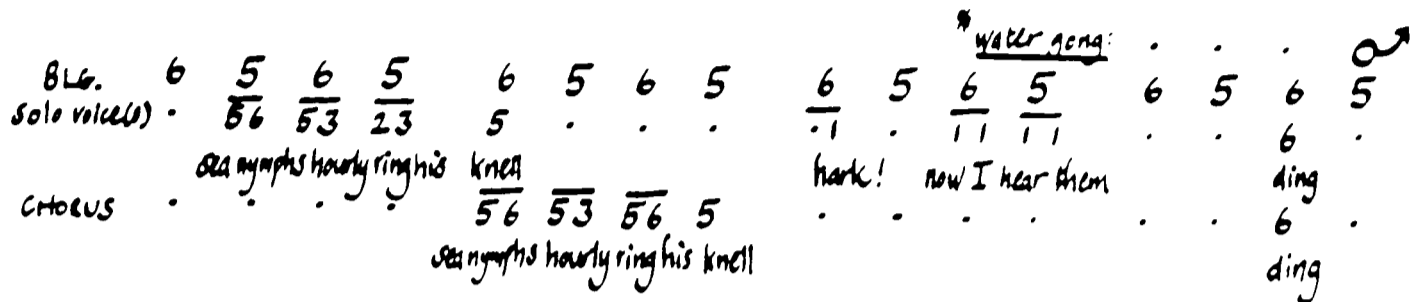 * water gong: . . . 
BLG. 6 5 6 5 6 5 6 5 6 5 6 5 6 5 6 5
Solo voice(s) . 56 53 23 5 . . . .1 . 11 11 . . 6 .
sea nymphs hourly ring his knell hark! now I hear them ding
CHORUS . . . . 56 53 56 5 . . . . . . 6 .
sea nymphs hourly ring his knell ding